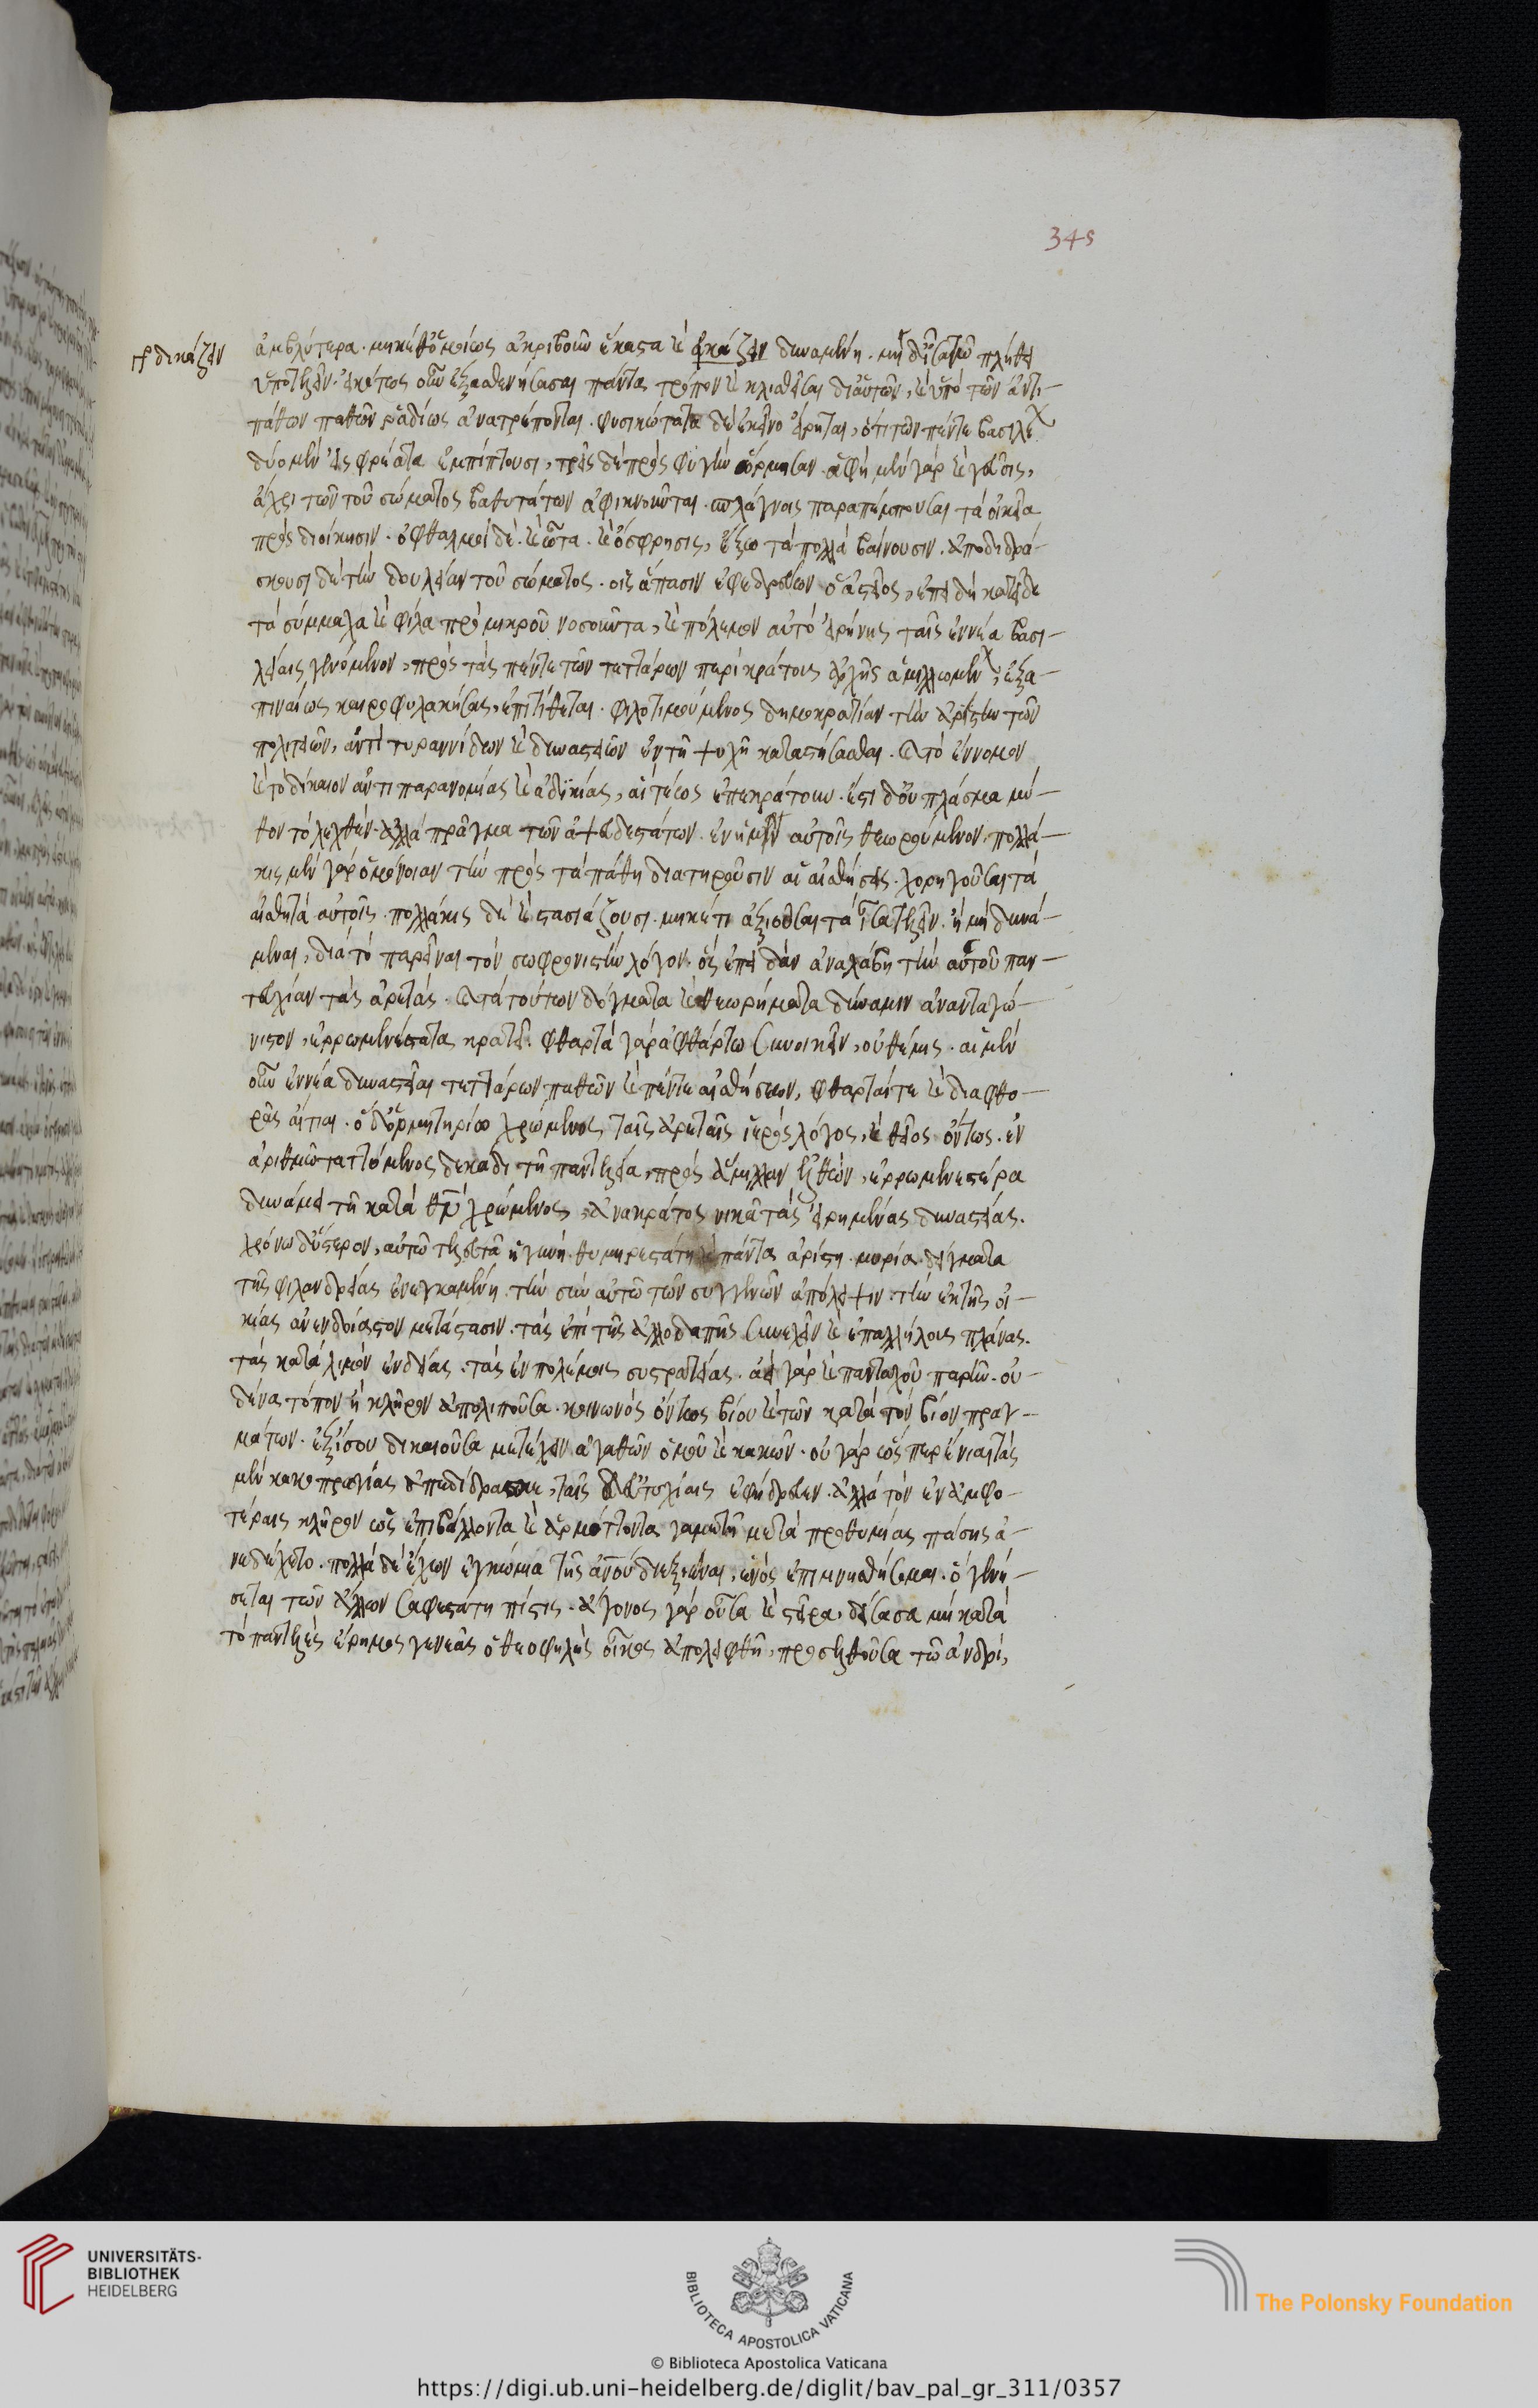 345
γρ δικάζειν
ἀμβλύτερα. μηκέθ' ὁμοίως ἀκριβοῦν ἕκαστα καὶ εἰκάζειν δυναμένη. μηδ' ἰσαρίθμῳ πλήθει
ὑποτελεῖν. εἰκότως οὖν ἐξασθενήσασαι πάντα τρόπον καὶ κλιθεῖσαι δι' αὐτῶν, καὶ ὑπὸ τῶν ἀντι-
πάθων παθῶν ῥᾳδίως ἀνατρέπονται. φυσικώτατα δὲ ἐκεῖνο εἴρηται, ὅτι τῶν πέντε βασιλέων
δύο μὲν εἰς φρέατα ἐμπίπτουσι, τρεῖς δὲ πρὸς φυγὴν ὥρμησαν. ἀφὴ μὲν γὰρ καὶ γεῦσις,
ἄχρι τῶν τοῦ σώματος βαθυτάτων ἀφικνοῦνται. σπλάγχνοις παραπέμπουσαι τὰ οἰκεῖα
πρὸς διοίκησιν. ὀφθαλμοὶ δὲ. καὶ ὦτα. καὶ ὄσφρησις, ἔξω τὰ πολλὰ βαίνουσιν. ἀποδιδρά-
σκουσι δὲ τὴν δουλείαν τοῦ σώματος. οἷς ἅπασιν ἐφεδρεύων ὁ ἀστεῖος, ἐπειδὴ κατεῖδε
τὰ σύμμαχα καὶ φίλα πρὸ μικροῦ νοσοῦντα, καὶ πόλεμον αὐτὸ εἰρήνης ταῖς ἐννέα βασι-
λείαις γενόμενον, πρὸς τὰς πέντε τῶν τεττάρων περὶ κράτους ἀρχῆς ἁμιλλωμένων, ἐξα-
πιναίως καιροφυλακήσας, ἐπιτίθεται. φιλοτιμούμενος δημοκρατίαν τὴν ἀρίστην τῶν
πολιτειῶν, ἀντὶ τυραννίδων καὶ δυναστειῶν ἐν τῇ ψυχῇ καταστήσασθαι. καὶ τὸ ἔννομον
καὶ τὸ δίκαιον ἀντὶ παρανομίας καὶ ἀδικίας, αἳ τέως ἐπεκράτουν. ἔστι δ' οὐ πλάσμα μύ-
θου τὸ λεχθέν. ἀλλὰ πρᾶγμα τῶν ἀψευδεστάτων. ἐν ἡμῖν αὐτοῖς θεωρούμενον. πολλά-
κις μὲν γὰρ ὁμόνοιαν τὴν πρὸς τὰ πάθη διατηροῦσιν αἱ αἰσθήσεις. χορηγοῦσαι τὰ
αἰσθητὰ αὐτοῖς. πολλάκις δὲ καὶ στασιάζουσι. μηκέτι ἀξιοῦσαι τὰ ἴσα τελεῖν. ἢ μὴ δυνά-
μεναι, διὰ τὸ παρεῖναι τὸν σωφρονιστὴν λόγον. ὃς ἐπειδὰν ἀναλάβῃ τὴν αὑτοῦ παν-
τευχίαν τὰς ἀρετὰς. καὶ τὰ τούτων δόγματα καὶ θεωρήματα δύναμιν ἀνανταγώ-
νιστον, ἐρρωμενέστατα κρατεῖ. φθαρτὰ γὰρ ἀφθάρτῳ συνοικεῖν, οὐ θέμις. αἱ μὲν
οὖν ἐννέα δυναστεῖαι τεττάρων παθῶν καὶ πέντε αἰσθήσεων, φθαρταί τε καὶ διαφθο-
ρᾶς αἴτιαι. ὁ δ' ὁρμητηρίῳ χρώμενος ταῖς ἀρεταῖς ἱερὸς λόγος, καὶ θεῖος ὄντως. ἐν
ἀριθμῷ ταττόμενος δεκάδι τῇ παντελείᾳ, πρὸς ἅμιλλαν ἐλθὼν, ἐρρωμενεστέρᾳ
δυνάμει τῇ κατὰ θεὸν χρώμενος, ἀνακράτος νικᾷ τὰς εἰρημένας δυναστείας.
χρόνῳ δ' ὕστερον, αὐτῷ τελευτᾷ ἡ γυνὴ θυμηρεστάτη καὶ πάντα ἀρίστη. μυρία δείγματα
τῆς φιλανδρείας ἐνεγκαμένη. τὴν σὺν αὐτῷ τῶν συγγενῶν ἀπόλειψιν. τὴν ἐκ τῆς οἰ-
κείας ἀνενδοίαστον μετάστασιν. τὰς ἐπὶ τῆς ἀλλοδαπῆς συνεχεῖς καὶ ἐπαλλήλους πλάνας.
τὰς κατὰ λιμὸν ἐνδείας. τὰς ἐν πολέμοις συστρατείας. ἀεὶ γὰρ καὶ πανταχοῦ παρῆν. οὐ-
δένα τόπον ἢ κλῆρον ἀπολιποῦσα. κοινωνὸς ὄντως βίου καὶ τῶν κατὰ τὸν βίον πραγ-
μάτων. ἐξίσου δικαιοῦσα μετέχειν ἀγαθῶν ὁμοῦ καὶ κακῶν. οὐ γὰρ ὥσπερ ἔνιαι τὰς
μὲν κακοπραγίας ἀπεδίδρασκε, ταῖς δ' εὐτυχίαις ἐφήδρευεν. ἀλλὰ τὸν ἐν ἀμφο-
τέραις κλῆρον ὡς ἐπιβάλλοντα καὶ ἁρμόττοντα γαμετῇ μετὰ προθυμίας πάσης ἀ-
νεδέχετο. πολλὰ δὲ ἔχων ἐγκώμια τῆς ἀνθρώπου διεξιέναι, ἑνὸς ἐπιμνησθήσομαι. ὃ γενή-
σεται τῶν ἄλλων σαφεστάτη πίστις. ἄγονος γὰρ οὖσα καὶ στεῖρα, δείσασα μὴ κατὰ
τὸ παντελὲς ἔρημος γενεᾶς ὁ θεοφιλὴς οἶκος ἀπολειφθῇ, προσελθοῦσα τῷ ἀνδρὶ,
UNIVERSITÄTS-
BIBLIOTHEK
HEIDELBERG
BIBLIOTECA APOSTOLICA VATICANA
© Biblioteca Apostolica Vaticana
The Polonsky Foundation
https://digi.ub.uni-heidelberg.de/diglit/bav_pal_gr_311/0357